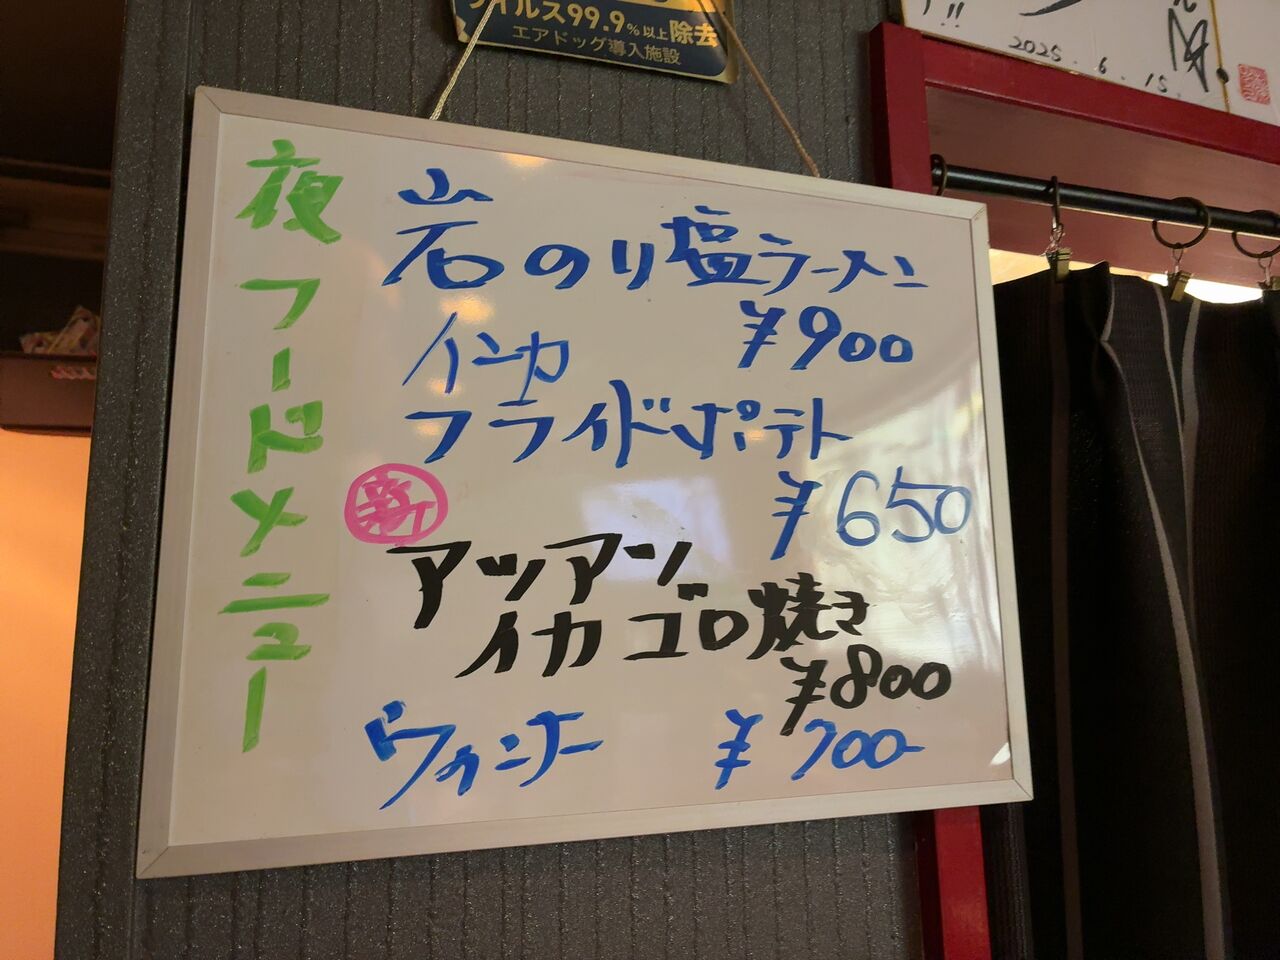 ウイルス99.9%以上除去
エアドッグ導入施設
!!
2025.6.15.
夜フードメニュー
岩のり塩ラーメン
¥900
インカ
フライドポテト
¥650
新
アツアツ
イカゴロ焼き
¥800
ウインナー ¥700-